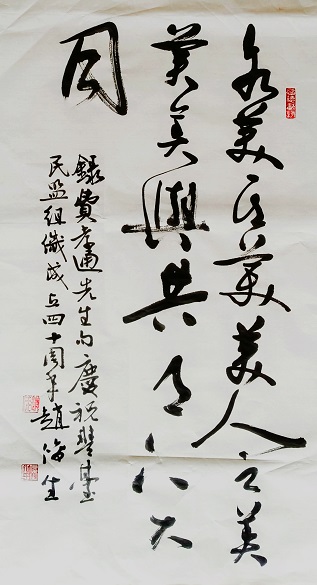 各美其美美人之美
美美與共天下大
同
錄費孝通先生句慶祝豐臺
民盟組織成立四十周年趙海生